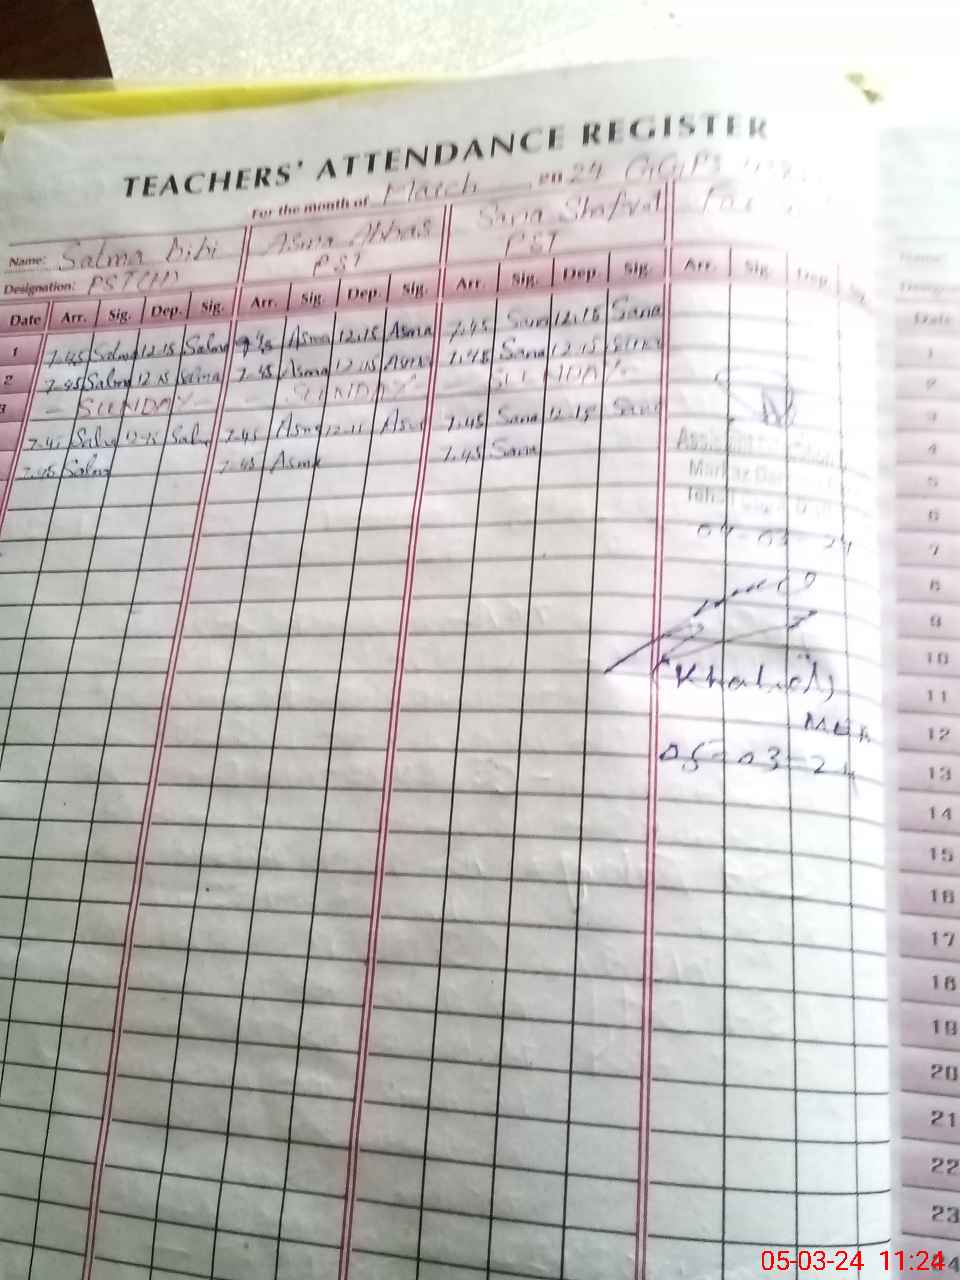 TEACHERS' ATTENDANCE REGISTER
For the month of March 24
Name: Salma Bibi Asma Abbas Sana Shafqat
Designation: PST(H) PST PST
Date Arr. Sig. Dep. Sig. Arr. Sig. Dep. Sig. Arr. Sig. Dep. Sig. Arr. Sig. Dep. Sig.
1 7.45 Salma 12.15 Salma Asma 12.15 Asma 7.45 Sana 12.15 Sana
2 7.45 Salma 12.15 Salma 7.45 Asma 12.15 Asma 7.45 Sana 12.15 Sana
3 - SUNDAY - SUNDAY - SUNDAY
7.45 Salma 7.45 Asma 7.45 Sana 12.15 Sana
7.45 Salma 7.45 Asma 7.45 Sana
04-03-24
(Khalid)
MEA
05-03-24
Name:
Date
1
2
3
4
5
6
7
8
9
10
11
12
13
14
15
16
17
18
19
20
21
22
23
05-03-24 11:24